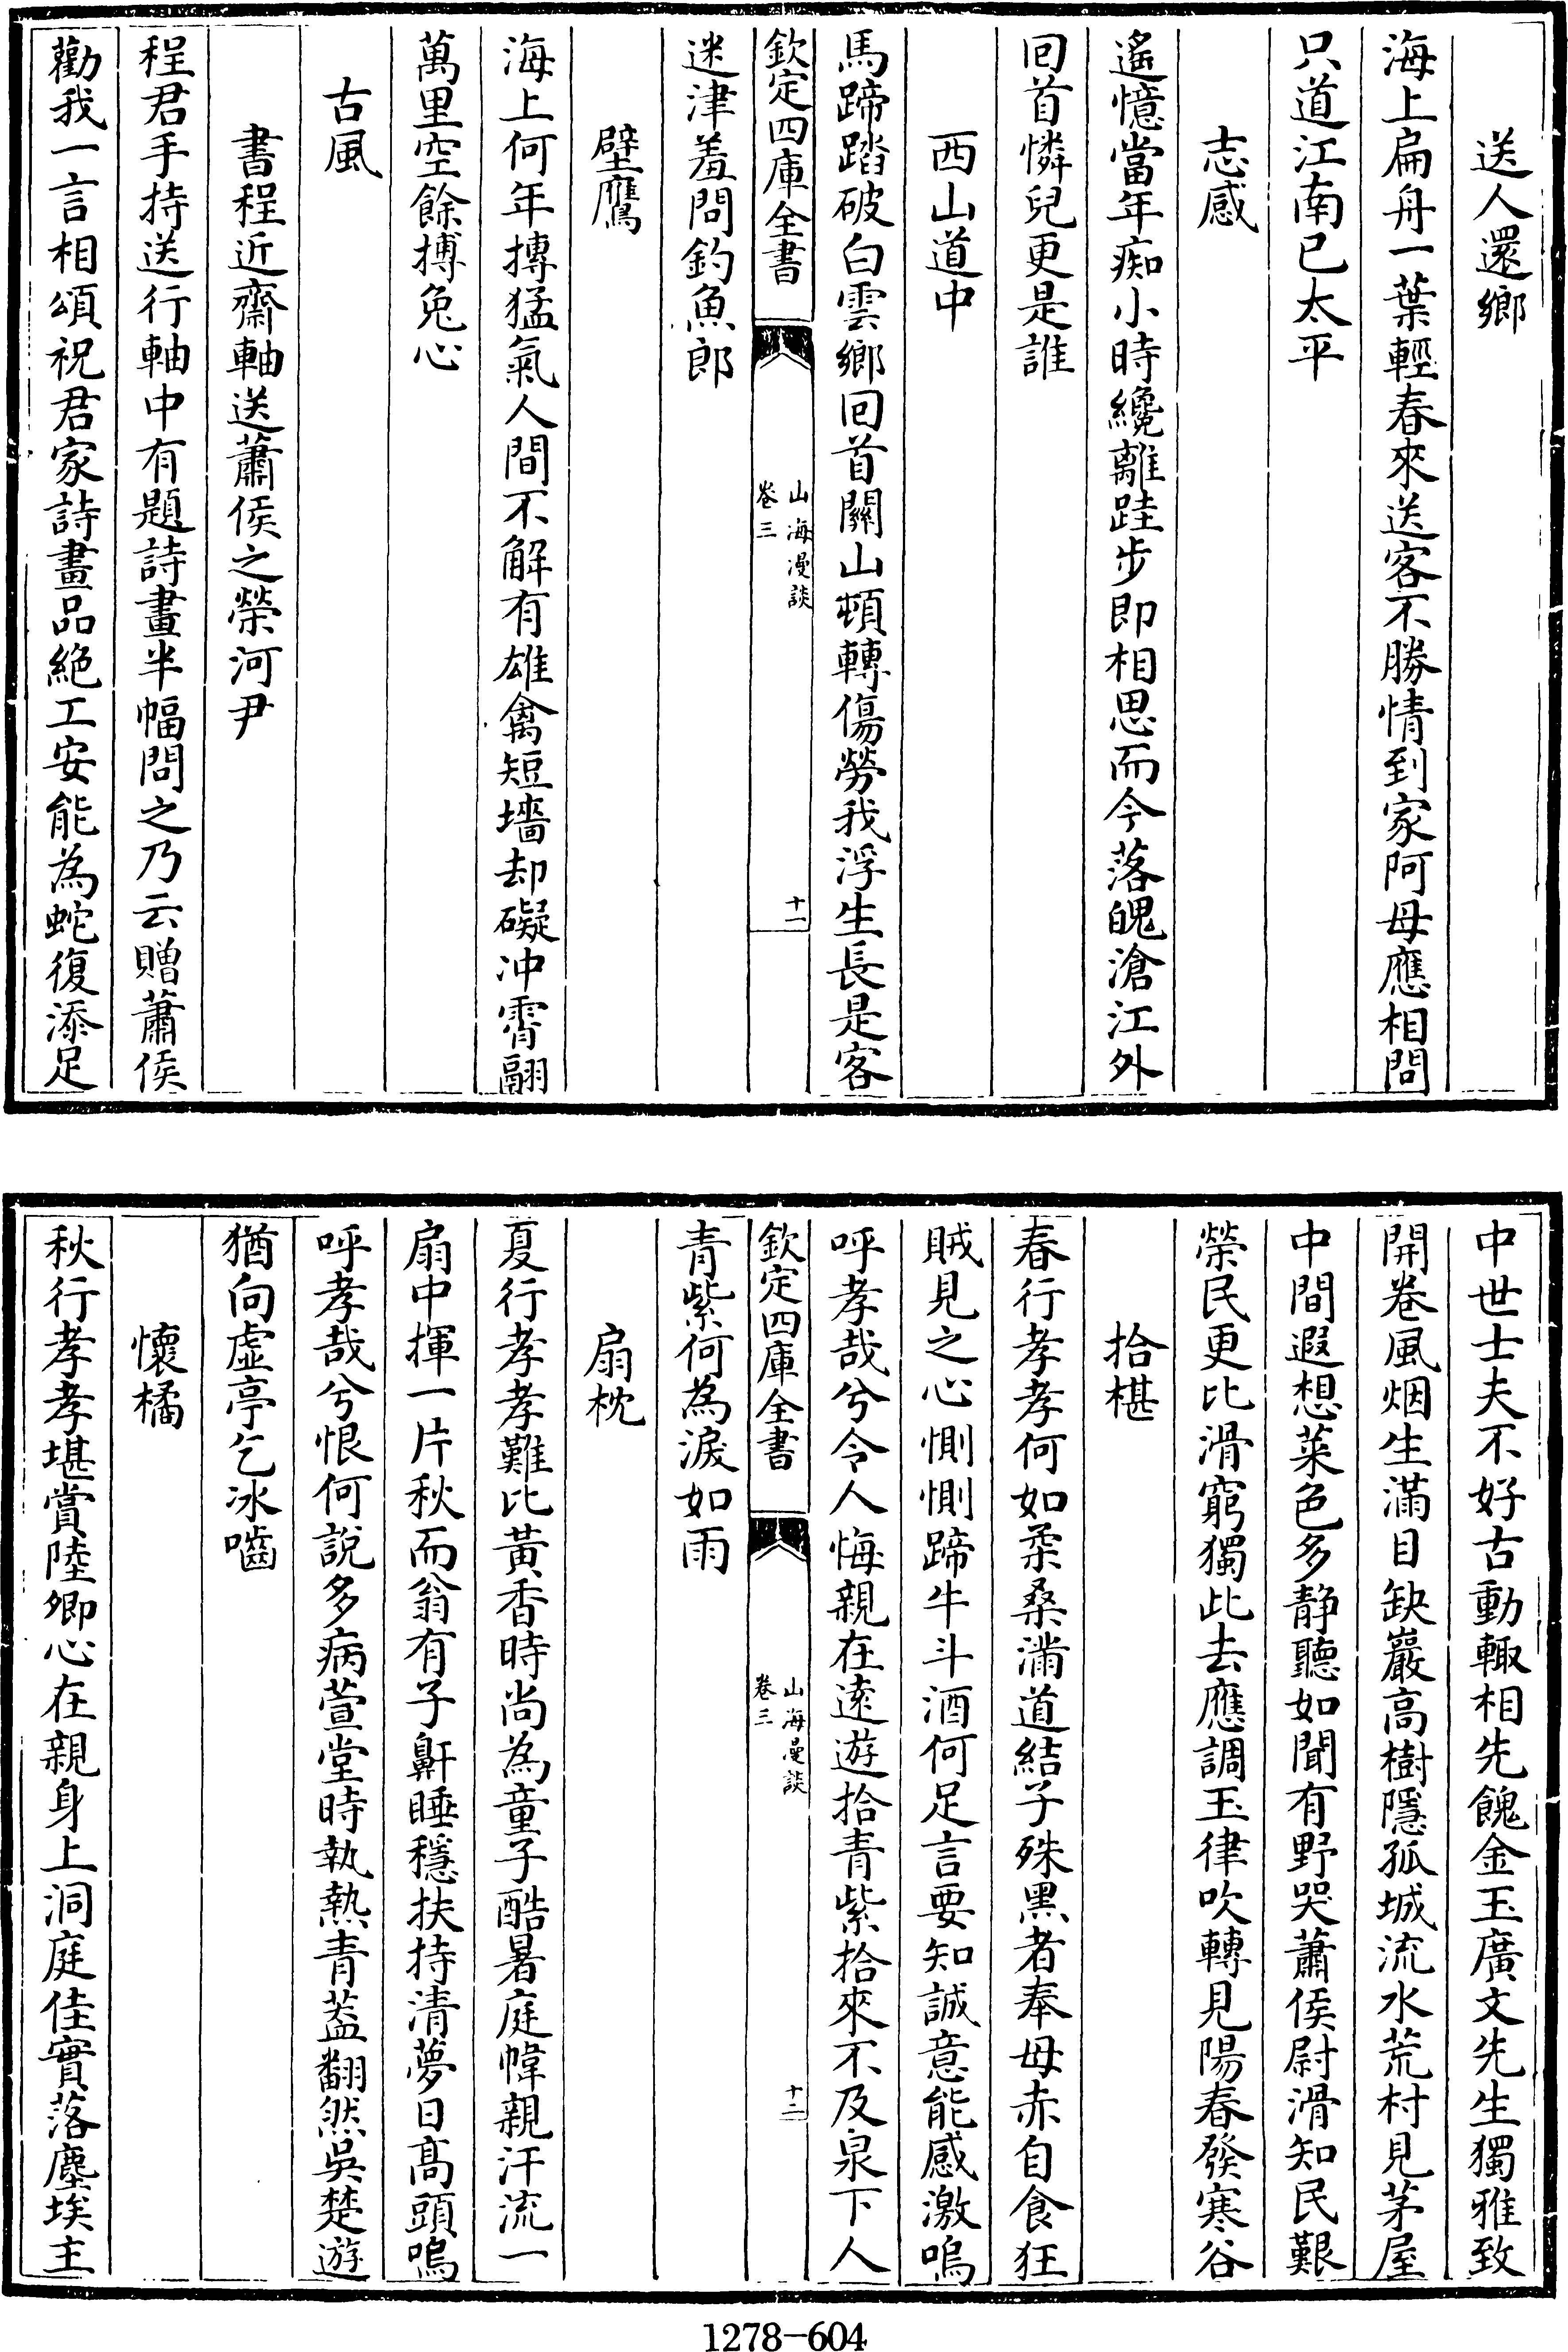 送人還鄉
海上扁舟一葉輕春來送客不勝情到家阿母應相問
只道江南已太平
志感
遙憶當年痴小時纔離跬步即相思而今落魄滄江外
回首憐兒更是誰
西山道中
馬蹄踏破白雲鄉回首關山頓轉傷勞我浮生長是客
欽定四庫全書
山海漫談
卷三
十一
迷津羞問釣魚郎
壁鷹
海上何年摶猛氣人間不解有雄禽短墻却礙冲霄翮
萬里空餘搏兔心
古風
書程近齋軸送蕭侯之榮河尹
程君手持送行軸中有題詩畫半幅問之乃云贈蕭侯
勸我一言相頌祝君家詩畫品絕工安能為蛇復添足
中世士夫不好古動輙相先餽金玉廣文先生獨雅致
開卷風烟生滿目缺巖高樹隱孤城流水荒村見茅屋
中間遐想菜色多静聽如聞有野哭蕭侯尉滑知民艱
榮民更比滑窮獨此去應調玉律吹轉見陽春發寒谷
拾椹
春行孝孝何如柔桑滿道結子殊黑者奉母赤自食狂
賊見之心惻惻蹄牛斗酒何足言要知誠意能感激嗚
呼孝哉兮令人悔親在逺遊拾青紫拾來不及泉下人
欽定四庫全書
山海曼談
卷三
十二
青紫何為淚如雨
扇枕
夏行孝孝難比黃香時尚為童子酷暑庭幃親汗流一
扇中揮一片秋而翁有子鼾睡穩扶持清夢日髙頭嗚
呼孝哉兮恨何說多病萱堂時執熱青葢翻然吳楚遊
猶向虛亭乞冰嚙
懷橘
秋行孝孝堪賞陸卿心在親身上洞庭佳實落塵埃主
1278-604